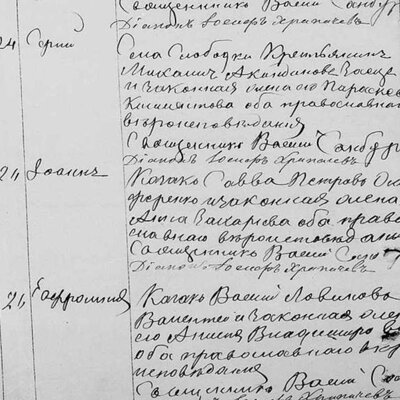 Священникъ Василій Санбур
Діаконъ Іосифъ Храпачевъ
24 Сергій
Села Слободки Крестьянинъ
Михаилъ
и законная жена его Параскева
Климентова оба православнаго
вѣроисповѣданія
Священникъ Василій Санбур
Діаконъ Іосифъ Храпачевъ
24 Іоаннъ
Казакъ Савва Петровъ
ференко и законная жена
Анна Захаріева оба право
славнаго вѣроисповѣданія
Священникъ Василій
Діаконъ Іосифъ Храпачевъ
24
Казакъ Василій
и законная жена
его Анисія Владимірова
оба православнаго вѣро
исповѣданія
Священникъ Василій Санбур
Діаконъ Іосифъ Храпачевъ